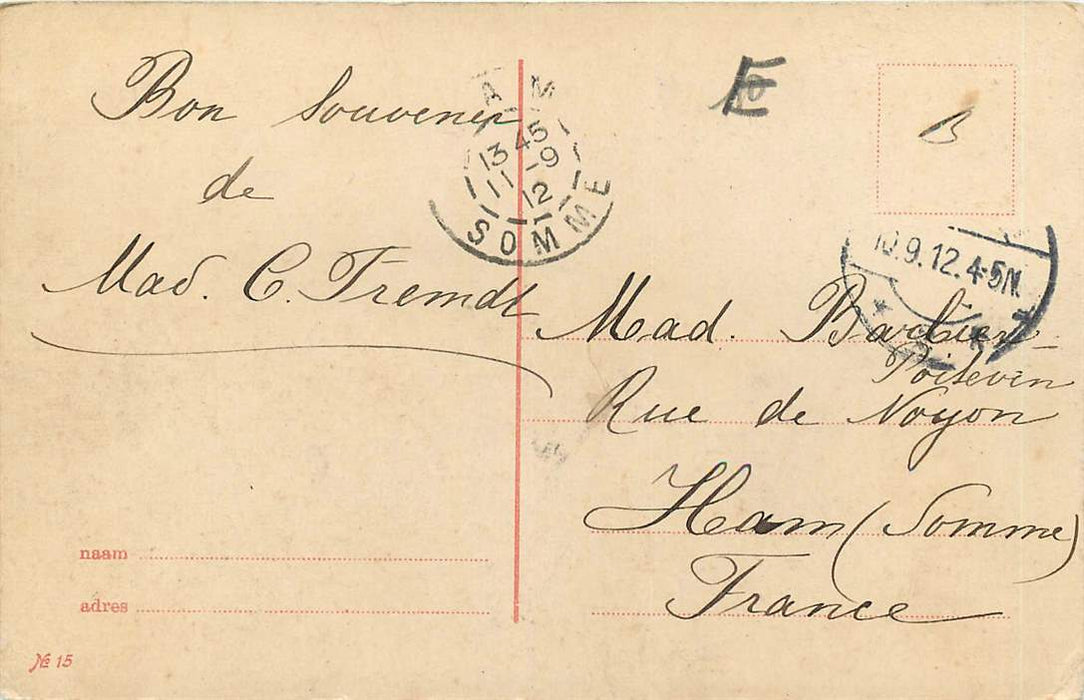 Bon Souvenir
de
Mad. C. Fremdt
naam
adres
№ 15
AM
13 45
11 - 9
12
SOMME
E
B
10.9.12.4-5N.
Mad. Barbier-
Poitevin
Rue de Noyon
Ham (Somme)
France